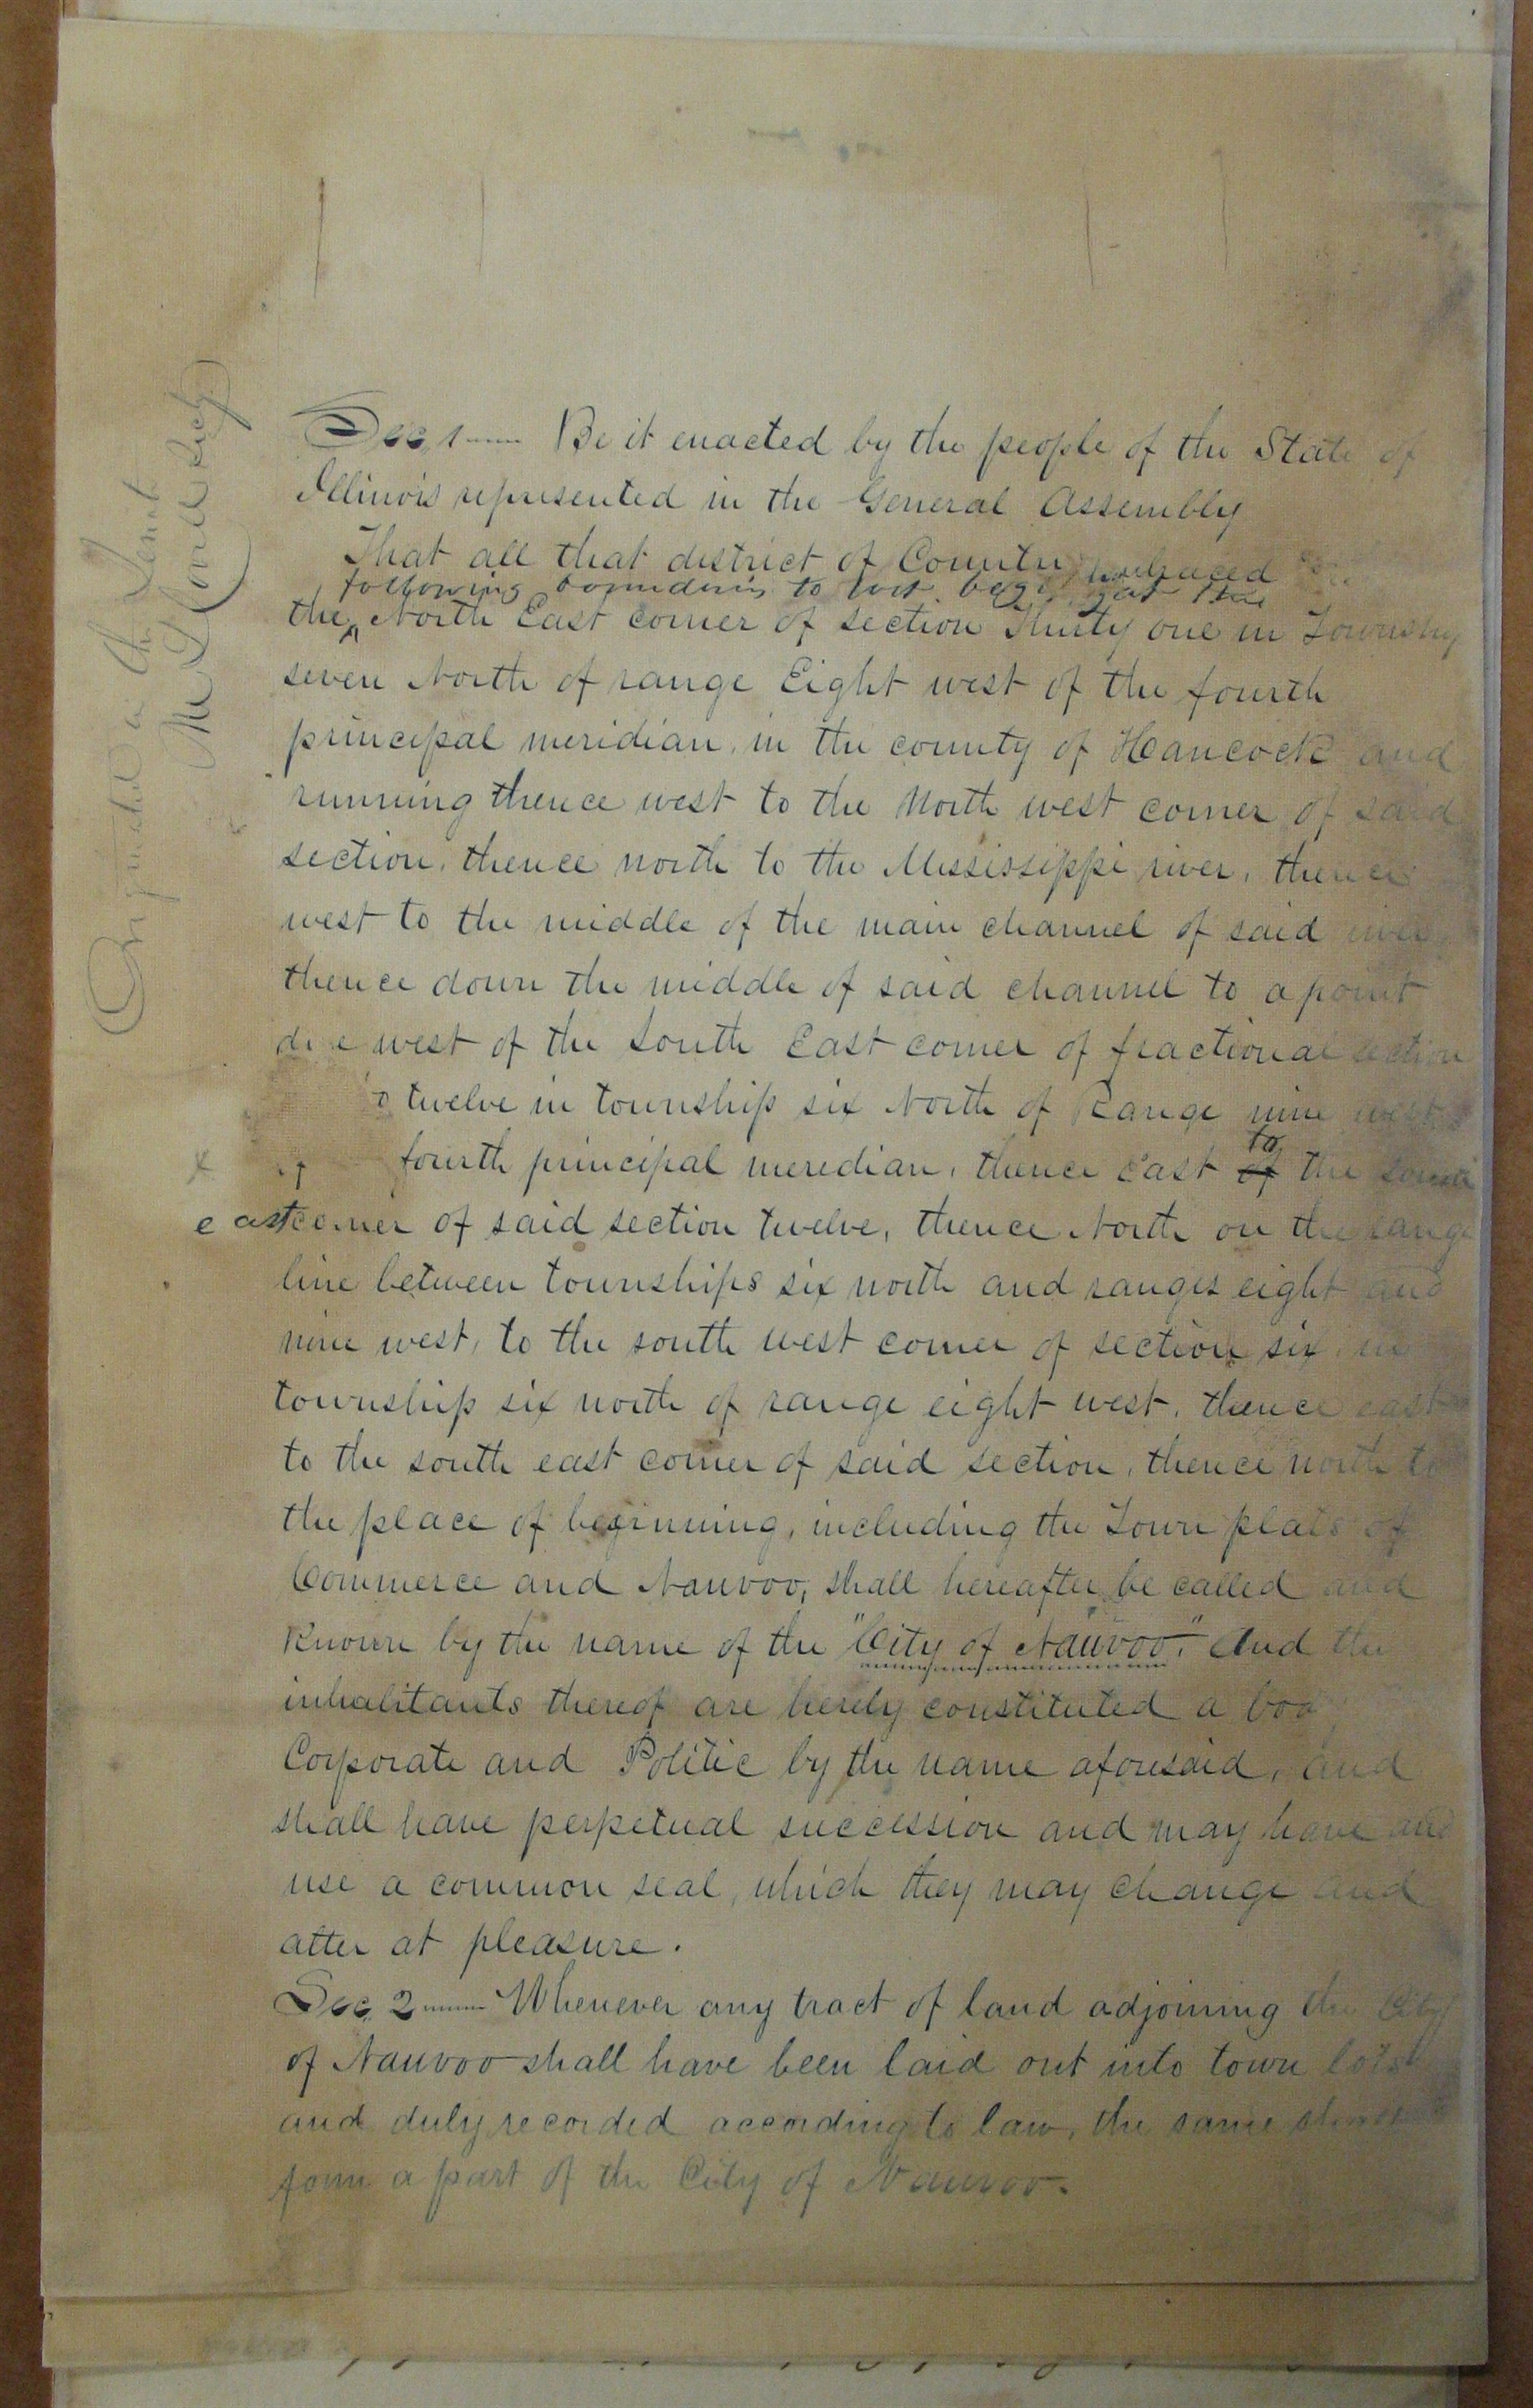 Sec, 1 Be it enacted by the people of the State of
Illinois represented in the General Assembly
That all that district of Country embraced
following boundaries to wit. begin at the
the North East corner of section Thirty one in Township
seven North of range Eight west of the fourth
principal meridian, in the county of Hancock and
running thence west to the North west corner of said
section, thence north to the Mississippi river, thence
west to the middle of the main channel of said river,
thence down the middle of said channel to a point
due west of the South East corner of fractional section
twelve in township six North of Range nine west
fourth principal meridian, thence East of to the South
east corner of said section twelve, thence North on the range
line between townships six north and ranges eight and
nine west, to the south west corner of section six, in
township six north of range eight west, thence east
to the south east corner of said section, thence north to
the place of beginning, including the Town plats of
Commerce and Nauvoo, shall hereafter be called and
Known by the name of the "City of Nauvoo". And the
inhabitants thereof are hereby constituted a bod
Corporate and Politic by the name aforesaid, and
shall have perpetual succession and may have and
use a common seal, which they may change and
alter at pleasure.
Sec, 2 Whenever any tract of land adjoining the City
of Nauvoo shall have been laid out into town lots
and duly recorded according to law, the same shall
form a part of the City of Nauvoo.